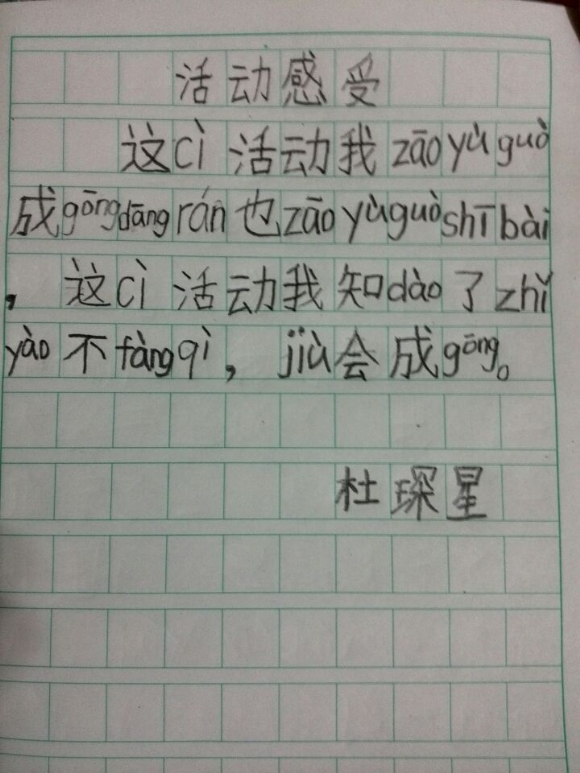 活动感受
这cì活动我zāoyùguò
成gōngdāngrán也zāoyùguòshībài
，这cì活动我知dào了zhǐ
yào不fàngqì，jiù会成gōng。
杜琛星